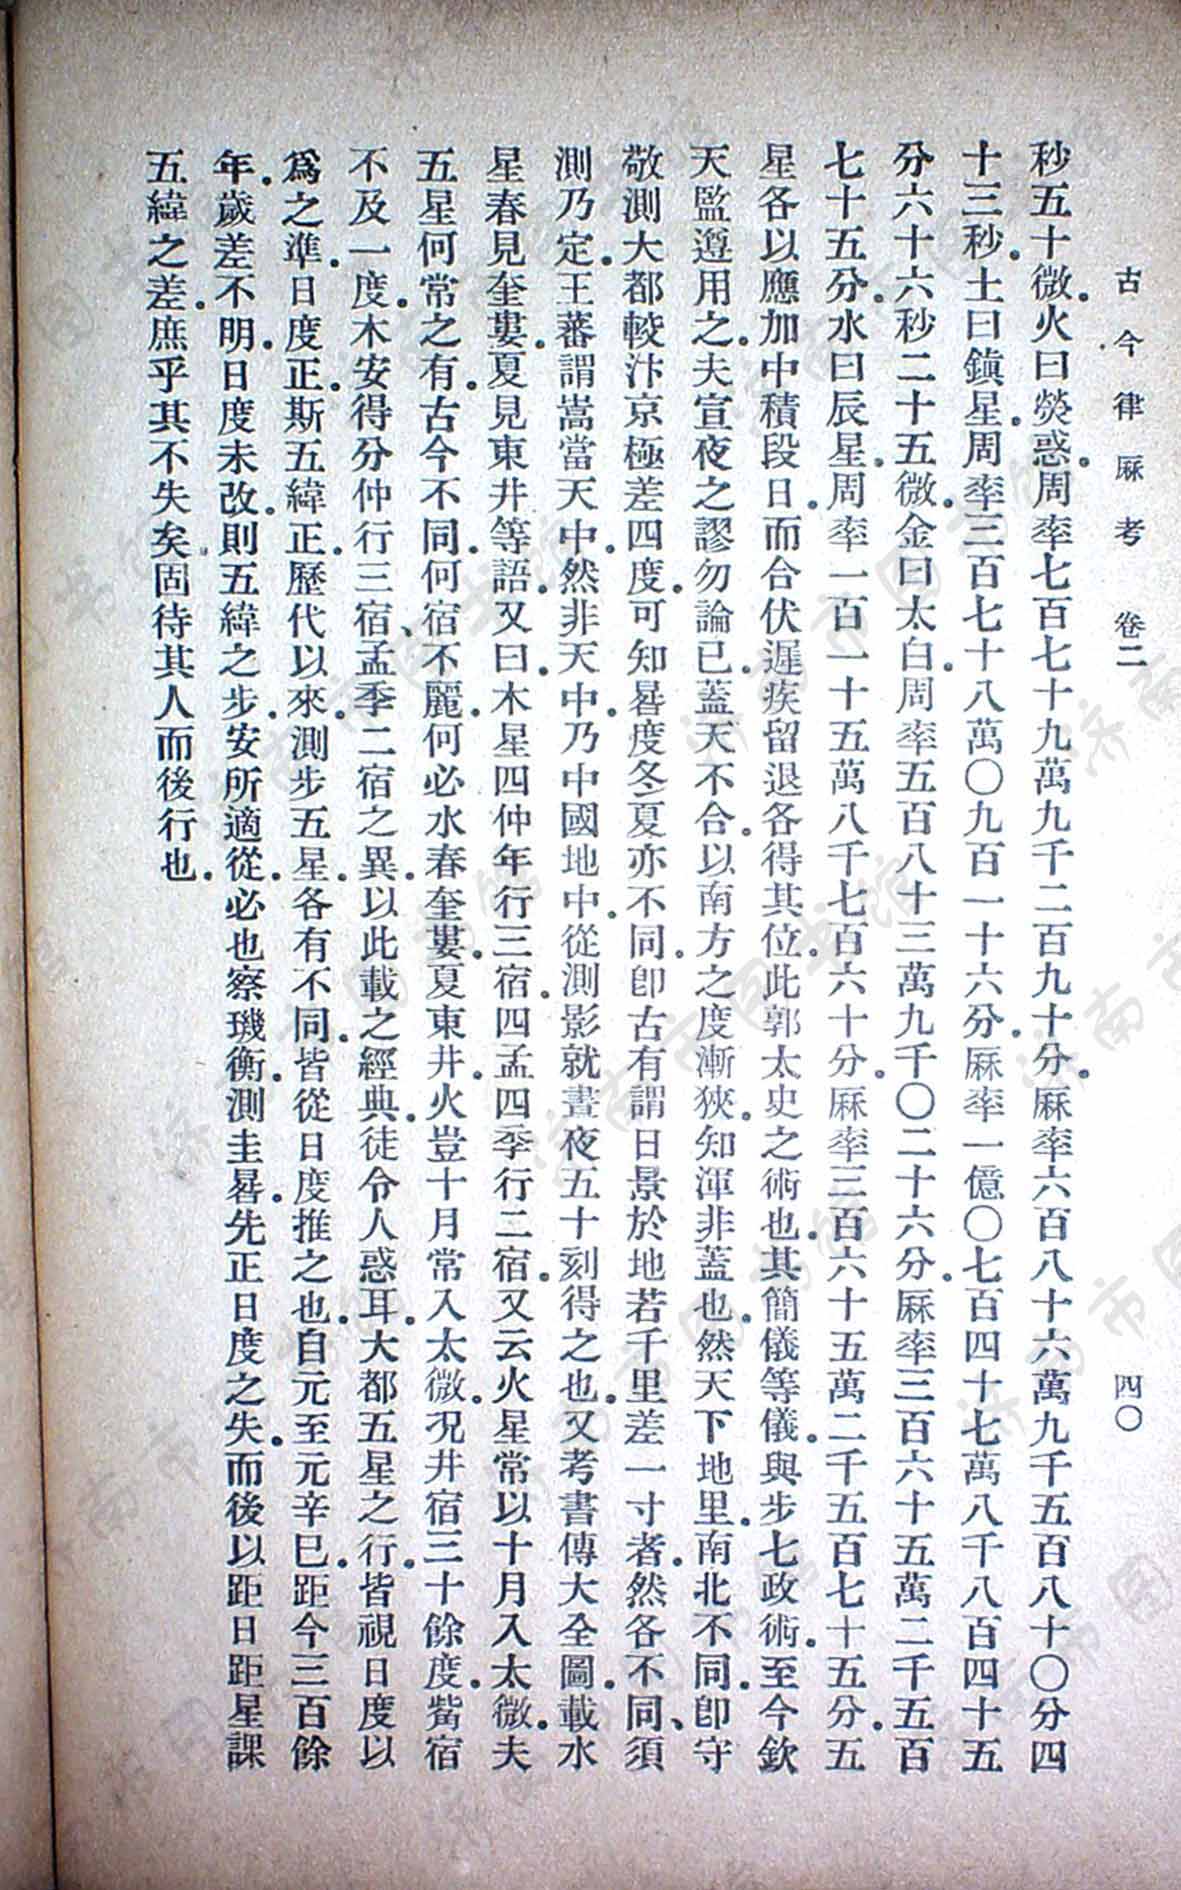 古今律厤考 卷二 四〇
秒五十微。火曰熒惑。周率七百七十九萬九千二百九十分。厤率六百八十六萬九千五百八十〇分四
十三秒。土曰鎮星。周率三百七十八萬〇九百一十六分。厤率一億〇七百四十七萬八千八百四十五
分六十六秒二十五微。金曰太白。周率五百八十三萬九千〇二十六分。厤率三百六十五萬二千五百
七十五分。水曰辰星。周率一百一十五萬八千七百六十分。厤率三百六十五萬二千五百七十五分。五
星各以應加中積段日。而合伏遲疾留退各得其位。此郭太史之術也。其簡儀等儀。與步七政術。至今欽
天監遵用之。夫宣夜之謬勿論已。蓋天不合。以南方之度漸狹。知渾非蓋也。然天下地里。南北不同。卽守
敬測大都較汴京極差四度。可知晷度冬夏亦不同。卽古有謂日景於地若千里差一寸者。然各不同、須
測乃定。王蕃謂嵩當天中。然非天中。乃中國地中。從測影就晝夜五十刻得之也。又考書傳大全圖。載水
星春見奎婁。夏見東井等語。又曰。木星四仲年行三宿。四孟四季行二宿。又云火星常以十月入太微。夫
五星何常之有。古今不同。何宿不麗。何必水春奎婁。夏東井。火豈十月常入太微。況井宿三十餘度。觜宿
不及一度。木安得分仲行三宿、孟季二宿之異。以此載之經典。徒令人惑耳。大都五星之行。皆視日度以
爲之準。日度正。斯五緯正。歷代以來。測步五星。各有不同。皆從日度推之也。自元至元辛巳。距今三百餘
年。歲差不明。日度未改。則五緯之步。安所適從。必也察璣衡。測圭晷。先正日度之失。而後以距日距星課
五緯之差。庶乎其不失矣。固待其人而後行也。